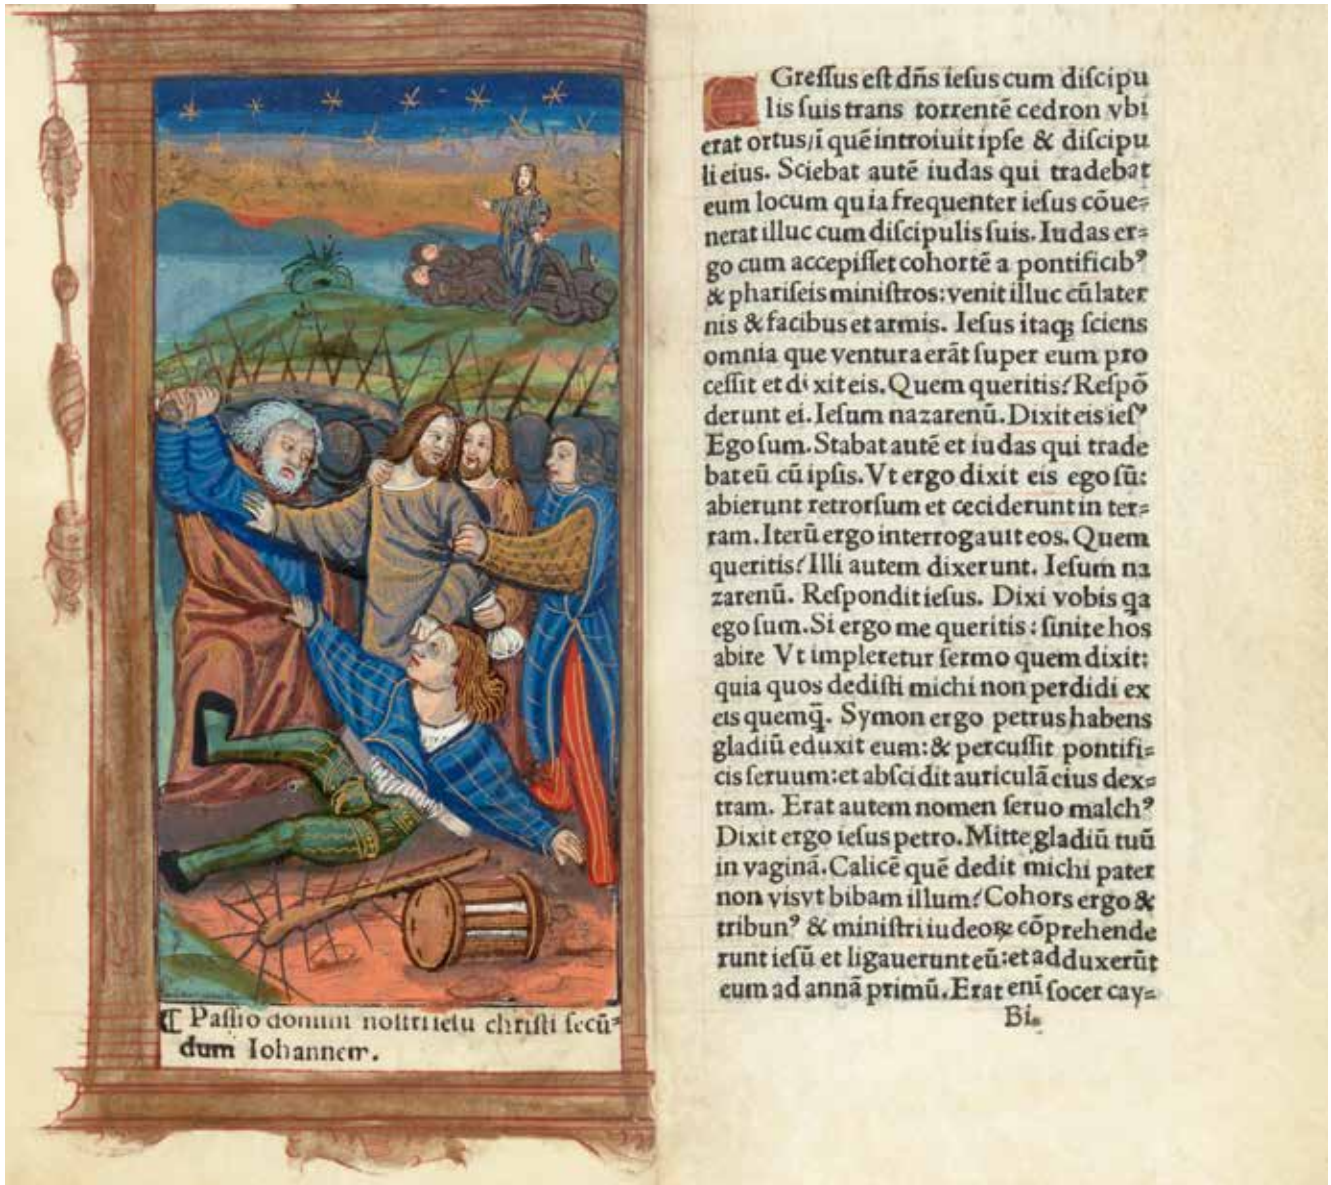 ⁋ Passio domini nostri iesu christi secū⸗
dum Iohannem.
EGressus est dn̄s iesus cum discipu
lis suis trans torrentē cedron vbi
erat ortus/ī quē introiuit ipse & discipu
li eius. Sciebat autē iudas qui tradebat
eum locum quia frequenter iesus cōue⸗
nerat illuc cum discipulis suis. Iudas er⸗
go cum accepisset cohortē a pontificibꝰ
& phariseis ministros: venit illuc cū later
nis & facibus et armis. Iesus itaqꝫ sciens
omnia que ventura erāt super eum pro
cessit et dixit eis. Quem queritis? Respō
derunt ei. Iesum nazarenū. Dixit eis iesꝰ
Ego sum. Stabat autē et iudas qui trade
bat eū cū ipsis. Vt ergo dixit eis ego sū:
abierunt retrorsum et ceciderunt in ter⸗
ram. Iterū ergo interrogauit eos. Quem
queritis? Illi autem dixerunt. Iesum na
zarenū. Respondit iesus. Dixi vobis qa
ego sum. Si ergo me queritis: sinite hos
abire Vt impleretur sermo quem dixit:
quia quos dedisti michi non perdidi ex
eis quemq̄. Symon ergo petrus habens
gladiū eduxit eum: & percussit pontifi⸗
cis seruum: et abscidit auriculā eius dex⸗
tram. Erat autem nomen seruo malchꝰ
Dixit ergo iesus petro. Mitte gladiū tuū
in vaginā. Calicē quē dedit michi pater
non vis vt bibam illum? Cohors ergo &
tribunꝰ & ministri iudeoꝝ cōprehende
runt iesū et ligauerunt eū: et adduxerūt
eum ad annā primū. Erat enī socer cay⸗
Bi.